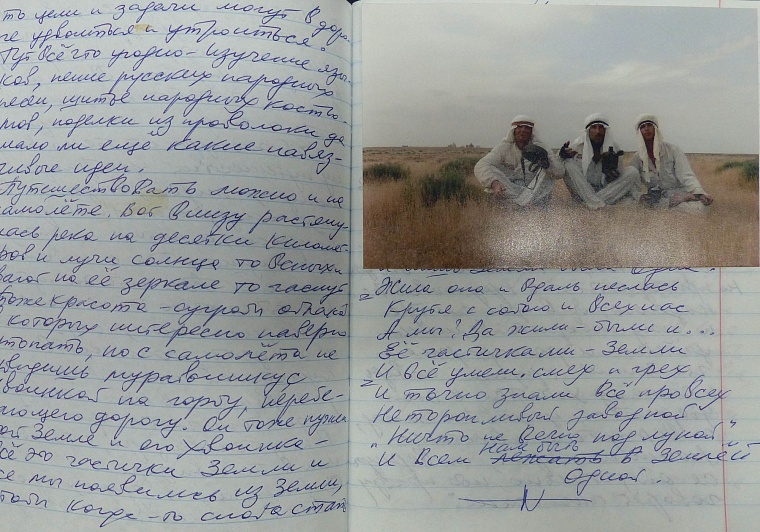 ть цели и задачи могут в доро-
ге удвоиться и утроиться.
Тут всё что угодно – изучение язы-
ков, пение русских народных
песен, шитьё народных костю-
мов, поделки из проволоки да
мало ли ещё какие навяз-
чивые идеи.
Путешествовать можно и на
самолёте. Вот внизу растяну-
лась река на десятки километ-
ров и лучи солнца то вспыхи-
вают на её зеркале то гаснут
Тоже красота – сугробы облаков
в которых интересно наверно
топать, но с самолёта не
увидишь муравьишку с
хвоинкой на горбу, перебе-
гающего дорогу. Он тоже нужен
Земле и его хвоинка –
Всё это частички Земли и
все мы появились из Земли,
чтобы когда-то снова стать
Жила она и вдаль неслась
Крутя с собою и всех нас
А мы? Да жили – были и...
Её частичками – Земли
И всё умели, смех и грех
И точно знали всё про всех
Неторопливый заводной
"Ничто не вечно под луной"
Нам быть
"И всем лежать в Землёй
Одной.